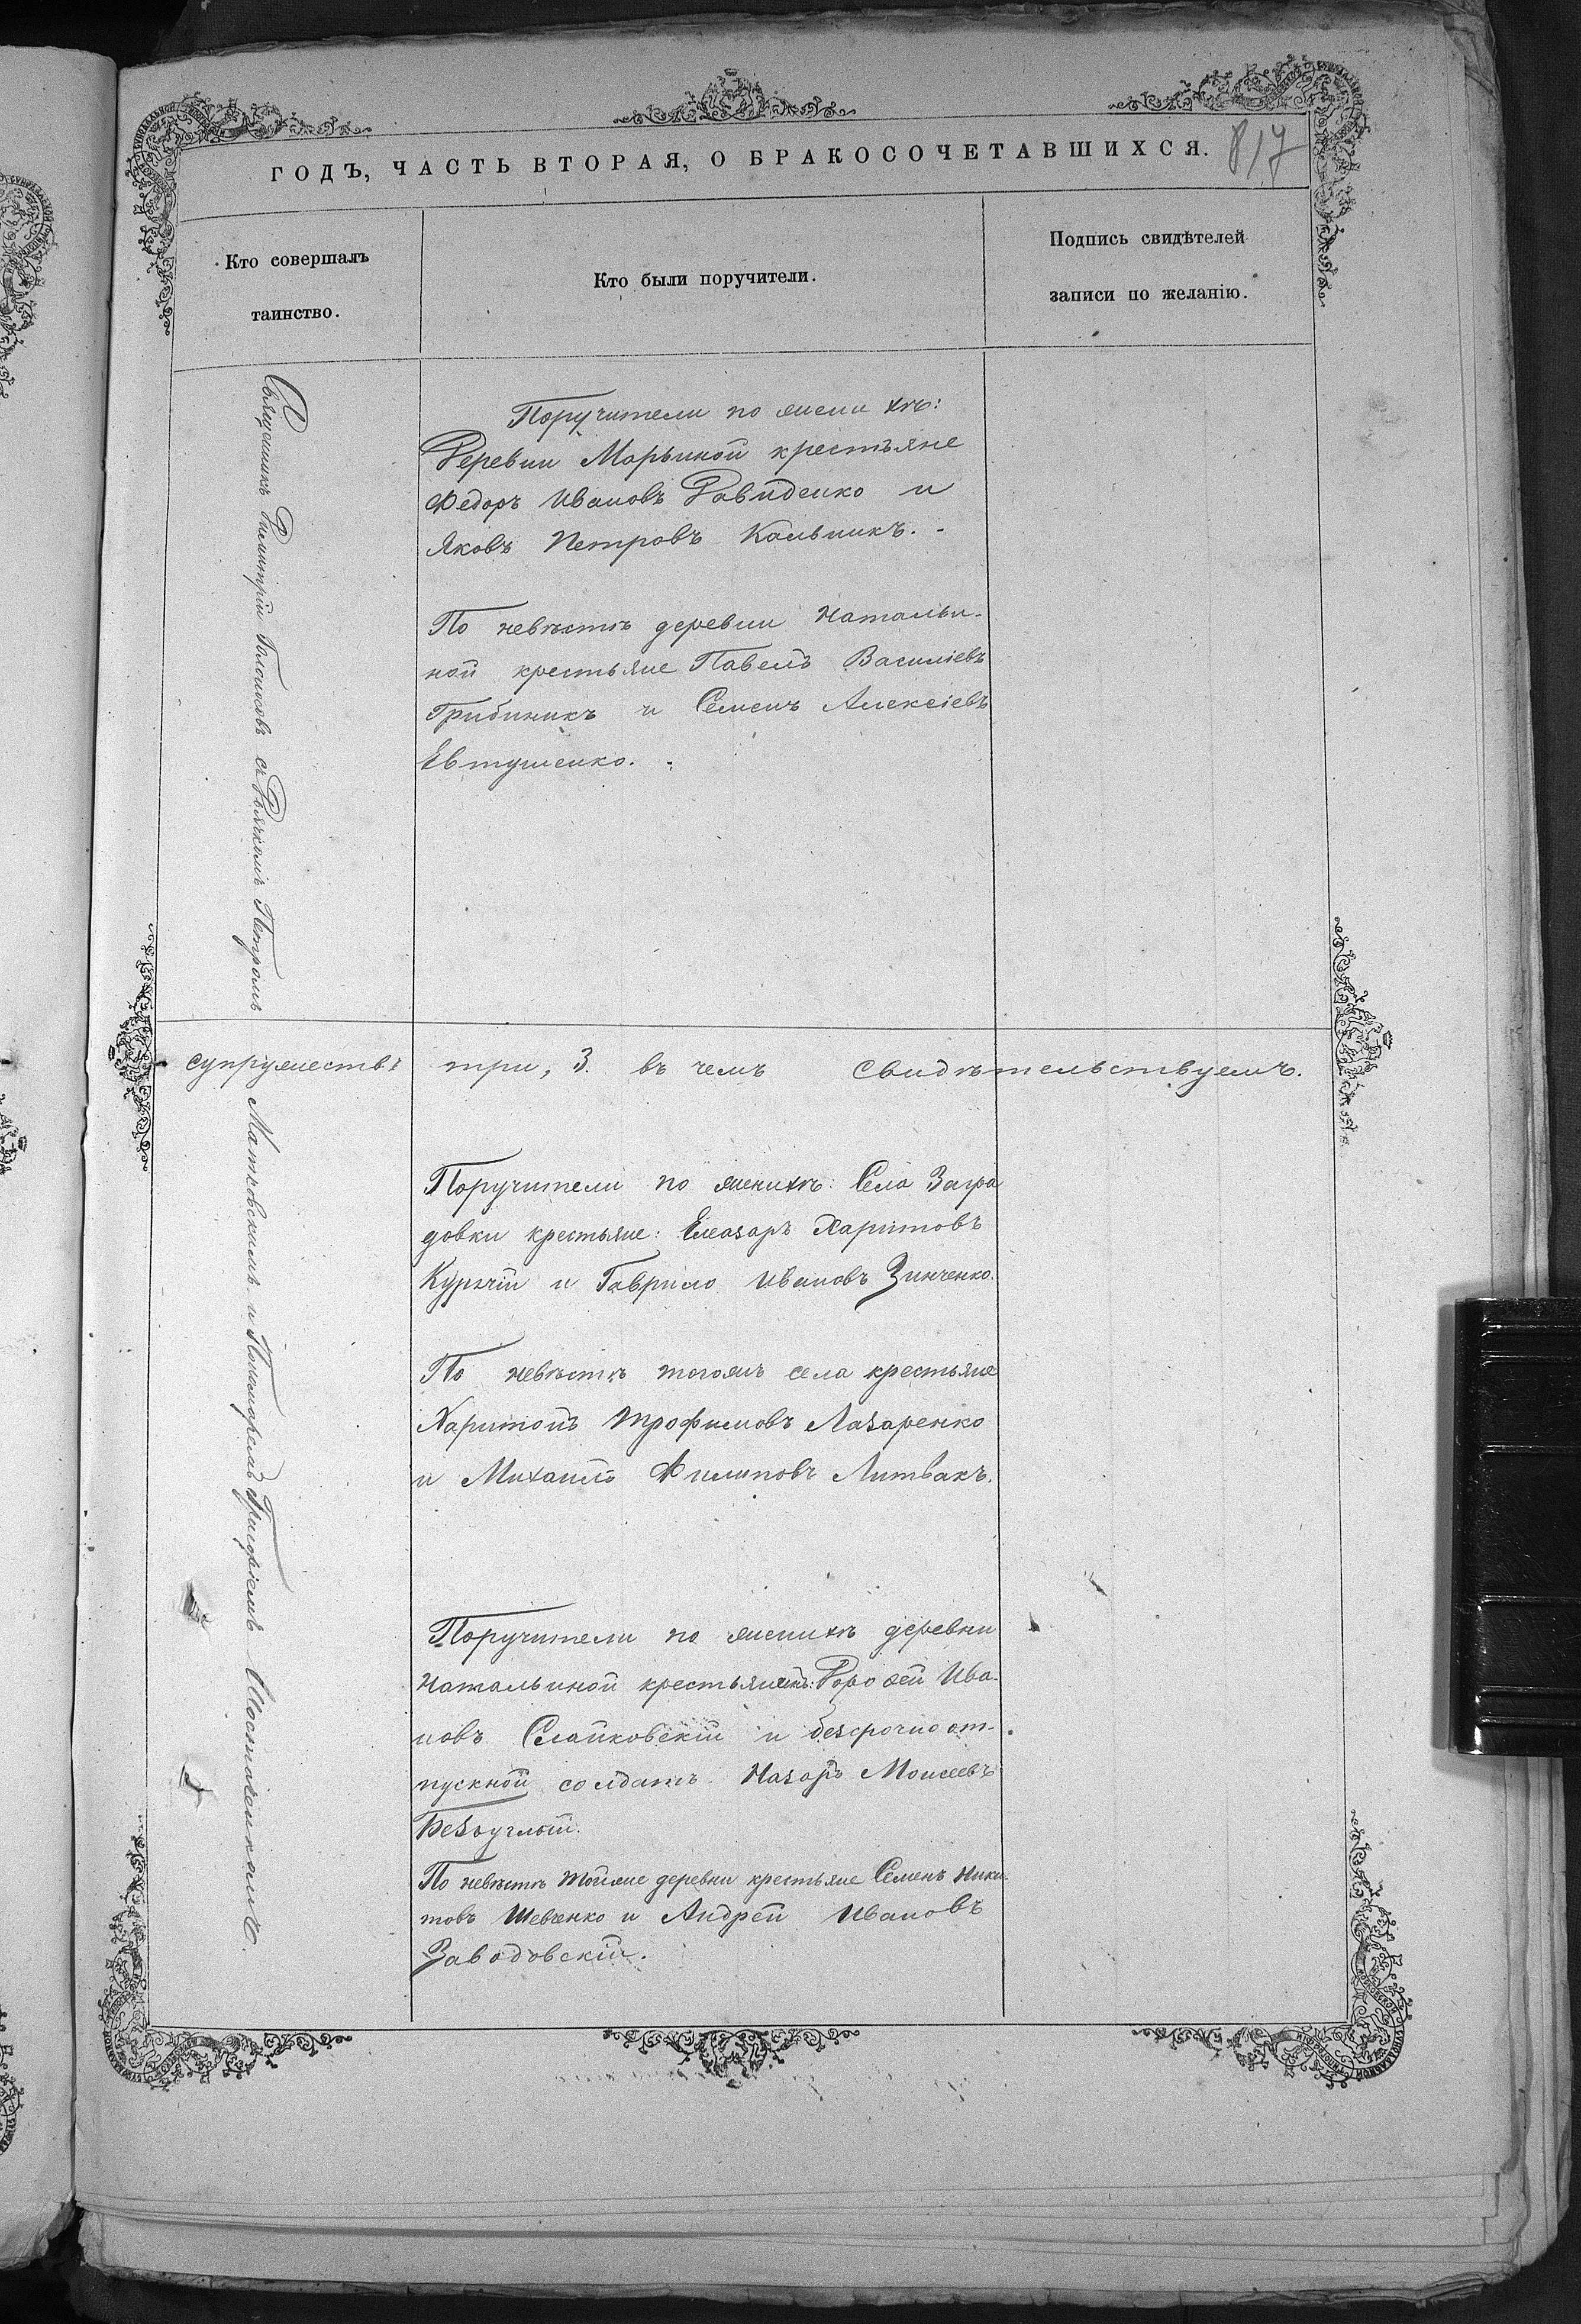 ГОДЪ, ЧАСТЬ ВТОРАЯ, О БРАКОСОЧЕТАВШИХСЯ.
817
Кто совершалъ
таинство.
Кто были поручители.
Подпись свидѣтелей
записи по желанію.
Священникъ Димитрій Голоносовъ съ Дьячкомъ Петромъ
Поручители по женихѣ:
Деревни Марьиной крестьяне
Федоръ Ивановъ Давиденко и
Яковъ Петровъ Кальникъ.
По невѣстѣ деревни Натальи-
ной крестьяне Павелъ Василіевъ
Грибиникъ и Семенъ Алексіевъ
Евтушенко.
супружествѣ три, 3. въ чемъ свидѣтельствуемъ.
Матковскимъ и Пономаремъ
Поручители по женихѣ: Села Загра
довки крестьяне: Елеазаръ Харитовъ
Кургій и Гаврило Ивановъ Зинченко.
По невѣстѣ тогожъ села крестьяне
Харитонъ Трофимовъ Лазаренко
и Михаилъ Филиповъ Литвакъ.
Поручители по женихѣ деревни
Натальиной крестьянинъ: Дорофей Ива-
новъ Слайковскій и безсрочно от-
пускной солдатъ Назаръ Моисеевъ
Безуглый.
По невѣстѣ тойже деревни крестьяне Семенъ Ники-
товъ Шевченко и Андрей Ивановъ
Заводовскій.